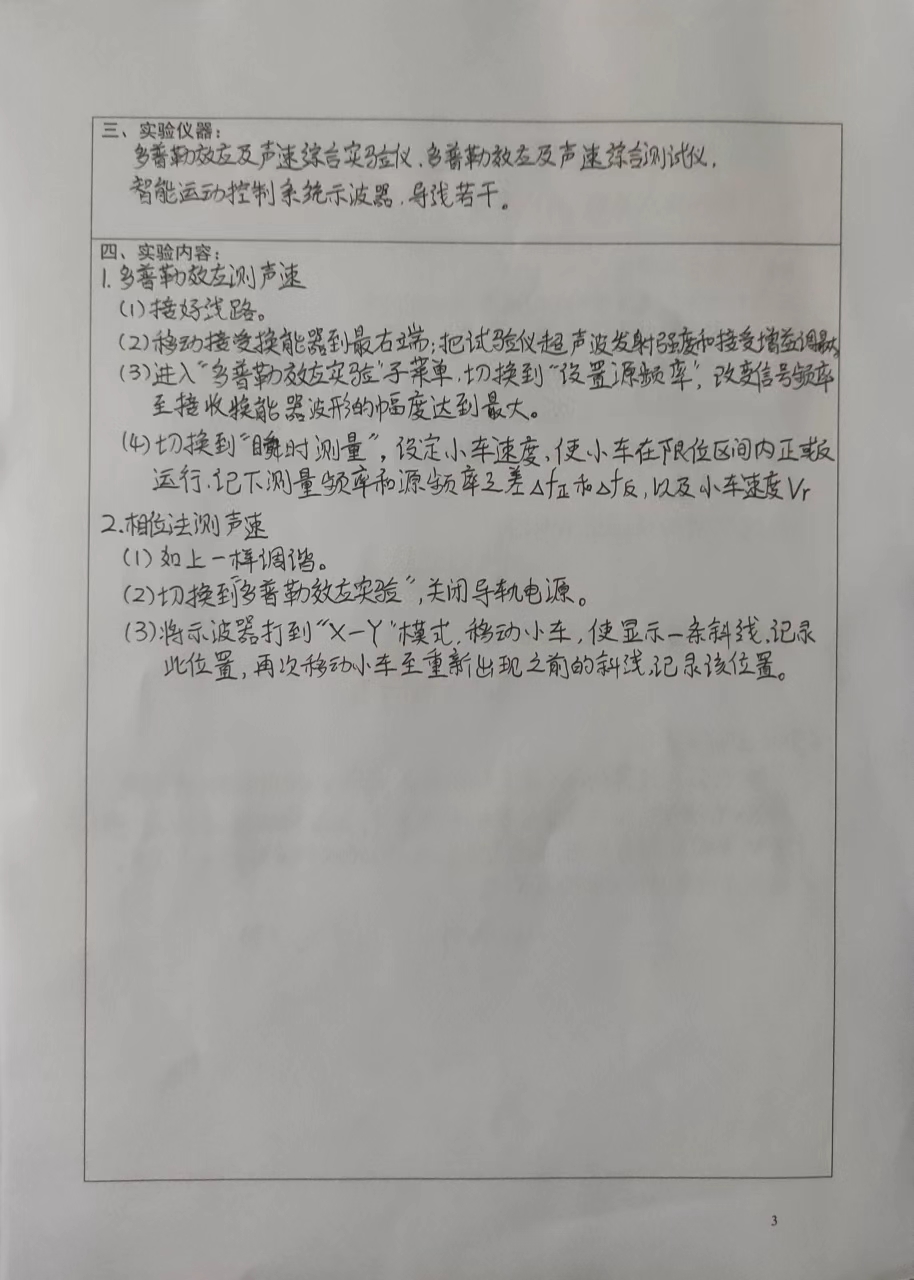 三、实验仪器：
多普勒效应及声速综合实验仪，多普勒效应及声速综合测试仪，
智能运动控制系统示波器，导线若干。
四、实验内容：
1.多普勒效应测声速
(1)接好线路。
(2)移动接受换能器到最右端；把试验仪超声波发射强度和接受增益调最大。
(3)进入"多普勒效应实验"子菜单，切换到"设置源频率"，改变信号频率
至接收换能器波形的幅度达到最大。
(4)切换到"瞬时测量"，设定小车速度，使小车在限位区间内正或反
运行，记下测量频率和源频率之差Δf正和Δf反，以及小车速度Vr
2.相位法测声速
(1)如上一样调谐。
(2)切换到"多普勒效应实验"，关闭导轨电源。
(3)将示波器打到"X-Y"模式，移动小车，使显示一条斜线，记录
此位置，再次移动小车至重新出现之前的斜线，记录该位置。
3